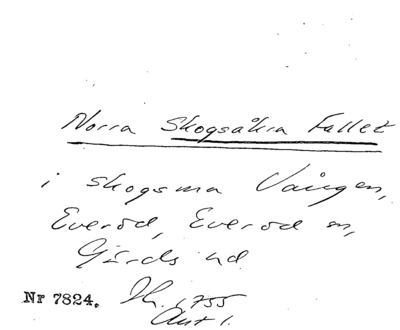 Norra Skogsåkra Fallet
i skogsma Vången,
Everöd, Everöd sn,
Gärds hd
Nr 7824. Sk. 1755
Akt 1.